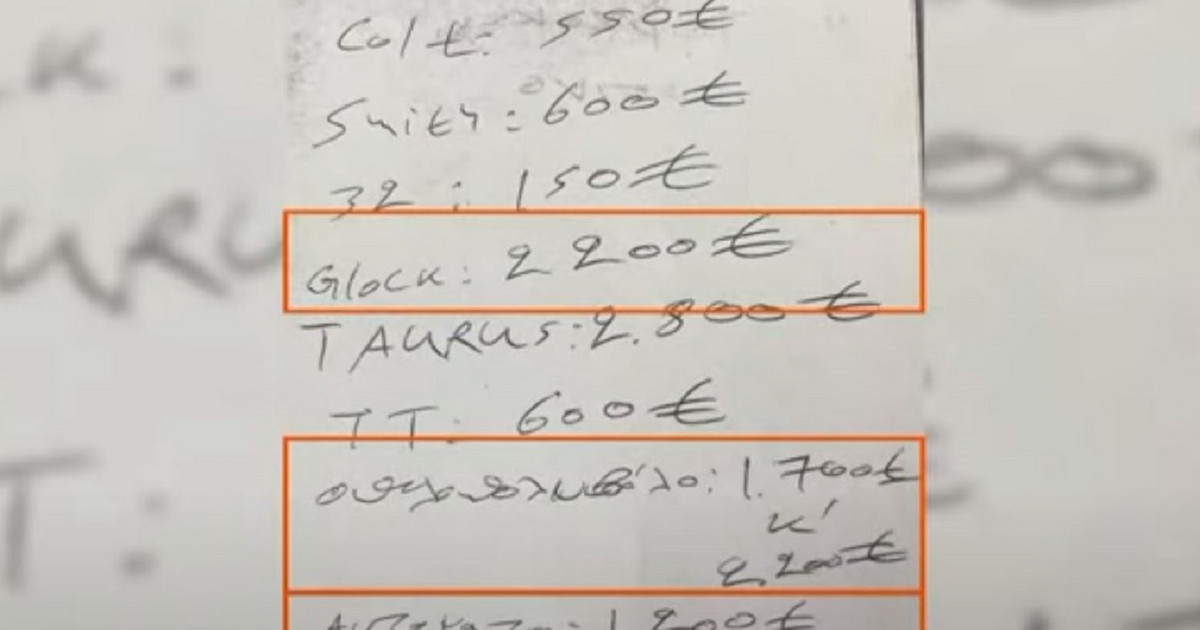 Colt: 550€
Smith: 600€
32: 150€
Glock: 2200€
TAURUS: 2.800€
TT: 600€
1.700€
κ'
2.200€